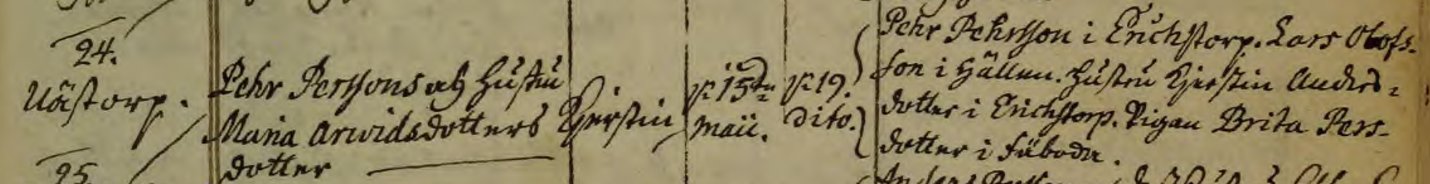 24.
Uästorp.
Pehr Perssons och hustru
Maria Arvidsdotters
dotter
Kjerstin
15de
Maii.
19.
dito.
Pehr Pehrsson i Erichstorp. Lars Olofs-
son i Hällan. hustru Kjerstin Anders-
dotter i Erichstorp. Pigan Brita Pers-
dotter i Fäboda.
25.